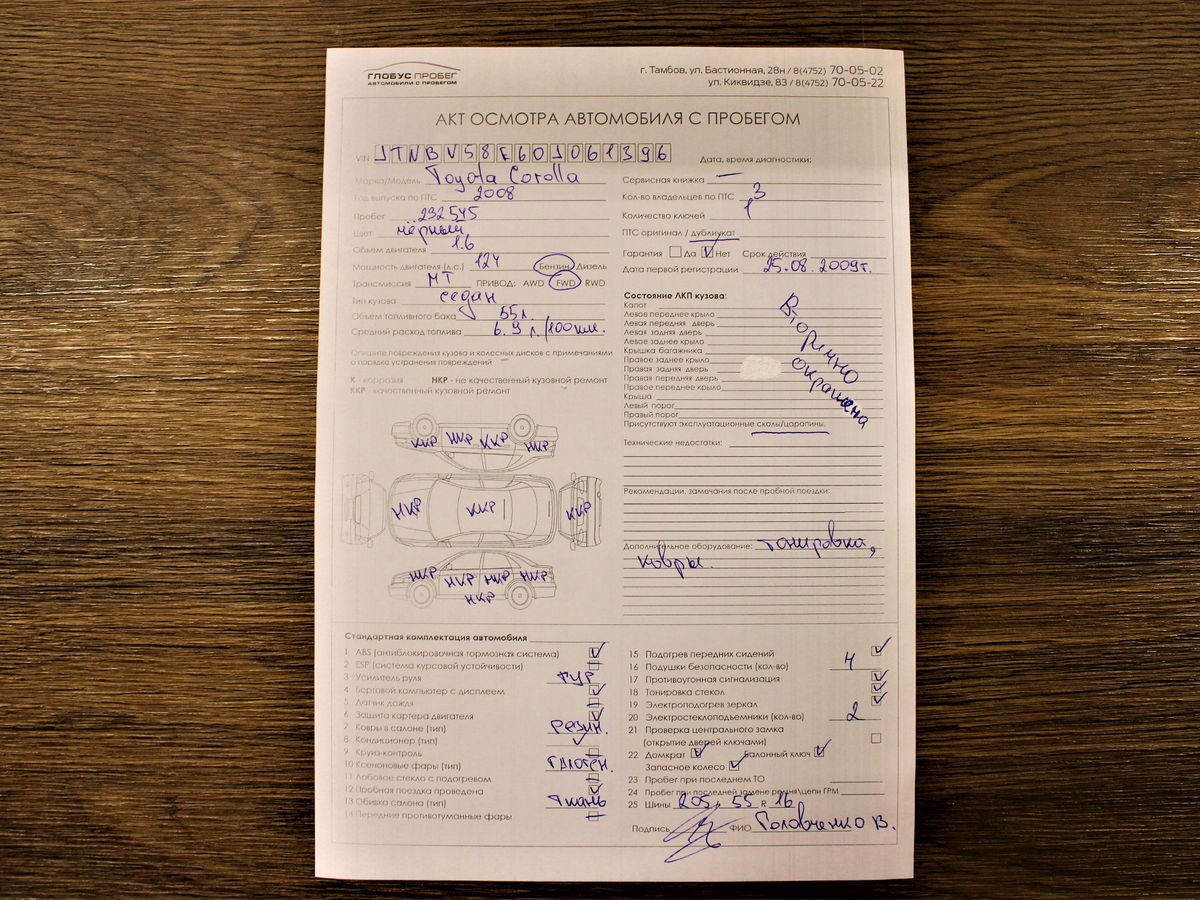 ГЛОБУС ПРОБЕГ
АВТОМОБИЛИ С ПРОБЕГОМ
г. Тамбов, ул. Бастионная, 28н / 8(4752) 70-05-02
ул. Киквидзе, 83 / 8(4752) 70-05-22
АКТ ОСМОТРА АВТОМОБИЛЯ С ПРОБЕГОМ
VIN JTNBV58E601061396
Марка/Модель Toyota Corolla
Год выпуска по ПТС 2008
Пробег 232545
Цвет чёрный
Объем двигателя 1.6
Мощность двигателя (л.с.) 124 Бензин Дизель
Трансмиссия МТ ПРИВОД: AWD FWD RWD
Тип кузова седан
Объем топливного бака 55л.
Средний расход топлива 6.9 л./100км.
Опишите повреждения кузова и колесных дисков с примечаниями
о порядке устранения повреждений
К - коррозия НКР - не качественный кузовной ремонт
ККР - качественный кузовной ремонт
ККР НКР ККР НКР
НКР ККР ККР
НКР НКР НКР НКР
НКР
Дата, время диагностики:
Сервисная книжка —
Кол-во владельцев по ПТС 3
Количество ключей 1
ПТС оригинал / дубликат
Гарантия Да Нет Срок действия
Дата первой регистрации 25.08.2009г.
Состояние ЛКП кузова:
Капот
Левое переднее крыло
Левая передняя дверь
Левая задняя дверь
Левое заднее крыло
Крышка багажника
Правое заднее крыло
Правая задняя дверь
Правая передняя дверь
Правое переднее крыло
Крыша
Левый порог
Правый порог
Вторично
окрашена
Присутствуют эксплуатационные сколы/царапины.
Технические недостатки:
Рекомендации, замечания после пробной поездки:
Дополнительное оборудование: Тонировка,
ковры.
Стандартная комплектация автомобиля
1 ABS (антиблокировочная тормозная система)
2 ESP (система курсовой устойчивости)
3 Усилитель руля ГУР
4 Бортовой компьютер с дисплеем
5 Датчик дождя
6 Защита картера двигателя
7 Ковры в салоне (тип) Резин.
8 Кондиционер (тип)
9 Круиз-контроль
10 Ксеноновые фары (тип) Галоген.
11 Лобовое стекло с подогревом
12 Пробная поездка проведена
13 Обивка салона (тип) Ткань
14 Передние противотуманные фары
15 Подогрев передних сидений
16 Подушки безопасности (кол-во) 4
17 Противоугонная сигнализация
18 Тонировка стекол
19 Электроподогрев зеркал
20 Электростеклоподъемники (кол-во) 2
21 Проверка центрального замка
(открытие дверей ключами)
22 Домкрат Балонный ключ
Запасное колесо
23 Пробег при последнем ТО
24 Пробег при последней замене ремня\цепи ГРМ
25 Шины 205 55 R 16
Подпись ФИО Головченко В.